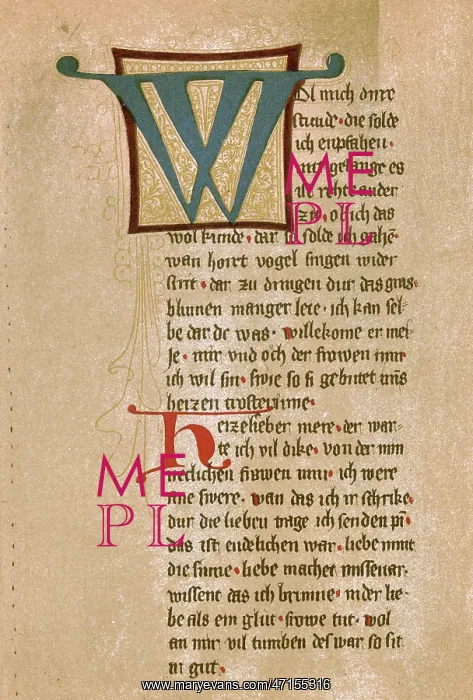 WOl mich dirre
stunde· die solde
ich enpfahen·
mit gesange es
ist rehte ander
zit· ob ich das
wol kunde· dar so solde ich gahē·
wan hoirt vogel singen wider
strit· dar zu dringen dur das gras·
blumen manger leie· ich kan sel-
be dar dc was· willekome er mei-
je· mir vnd och der frowen min
ich wil sin· swie so si gebutet irs
herzen trosterinne·
Herzelieber mere· der war-
te ich vil dike· von der min
neclichen frowen min· ich were
ane swere· wan das ich ir schrike·
dur die lieben trage ich senden pi·
das ist endelichen war· liebe mint
die sinne· liebe machet missevar·
wissent das ich brinne· in der lie-
be als ein glut· frowe tut· wol
an mir vil tumben des war so sit
ir gut·
ME
PL
ME
PL
www.maryevans.com/47155316